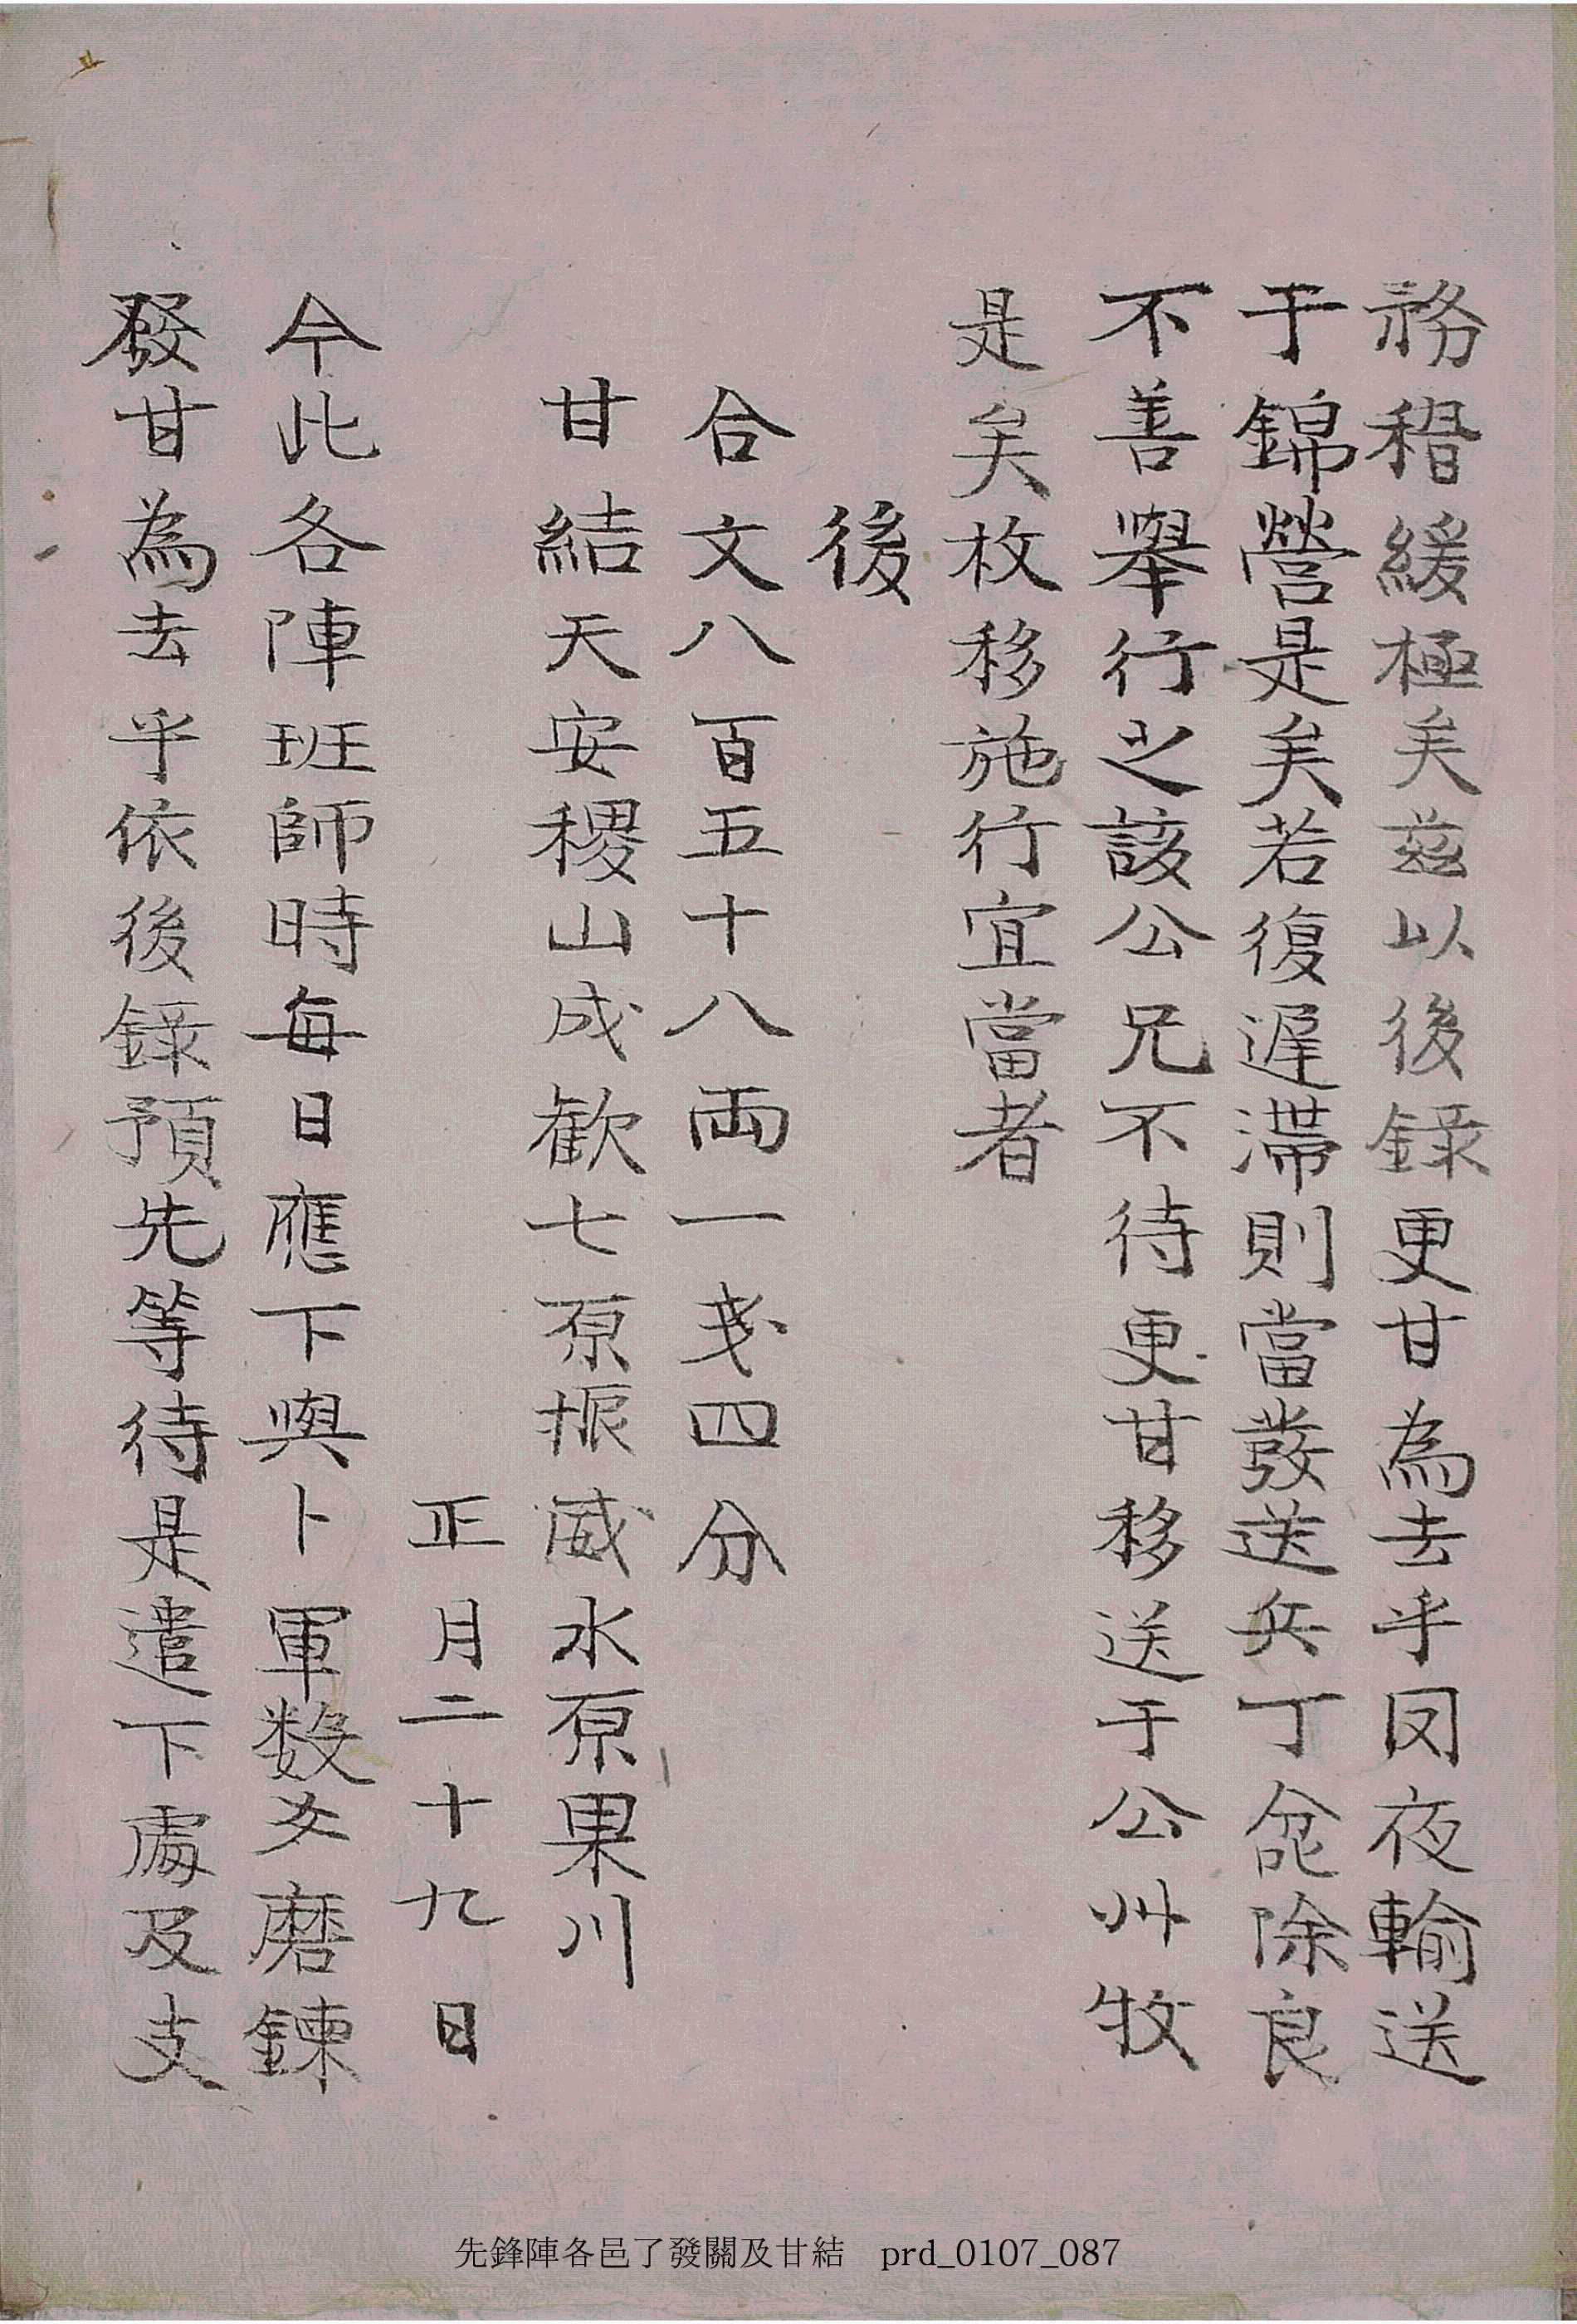 務稽緩極矣玆以後錄更甘為去乎夙夜輸送
于錦營是矣若復遲滯則當發送兵丁兺除良
不善舉行之該公兄不待更甘移送于公州牧
是矣枚移施行宜當者
後
合文八百五十八両一戔四分
甘結天安稷山成歡七原振威水原果川
正月二十九日
今此各陣班師時每日應下與卜軍数爻磨鍊
發甘為去乎依後錄預先等待是遣下處及支
先鋒陣各邑了發關及甘結 prd_0107_087